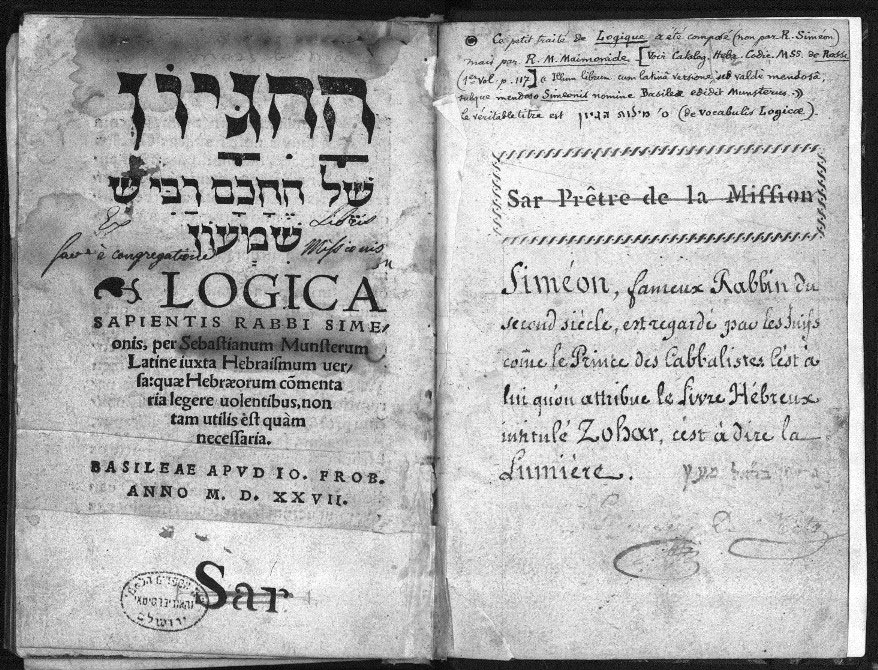 הַהִגָּיוֹן
שֶׁל הֶחָכָם רַבִּי שִׁ
שִׁמְעוֹן
Ex Libris
congregatione Missionis
LOGICA
SAPIENTIS RABBI SIME/
onis, per Sebastianum Munsterum
Latine iuxta Hebraiſmum uer/
ſa: quæ Hebræorum cōmenta
ria legere uolentibus, non
tam utilis eſt quàm
neceſſaria.
BASILEAE APVD IO. FROB.
ANNO M. D. XXVII.
Sar
ירושלים
Ce petit traité de Logique a été composé (non par R. Siméon)
mais par R. M. Maimonide [Voir Catalog. Hebr. Codic. MSS. de Rossi
(1er Vol. p. 117] Illum librum cum latinâ versione, sed valdè mendosâ,
subque mendoso Simeonis nomine Basileæ edidit Munsterus.»
le véritable titre est ס׳ מילות הגיון (de vocabulis Logicæ).
Sar Prêtre de la Miſſion
Siméon, fameux Rabbin du
second siècle, est regardé par les Juifs
cõme le Prince des Cabbalistes. C'est à
lui qu'on attribue le Livre Hébreux
intitulé Zohar, c'est à dire la
Lumiére.